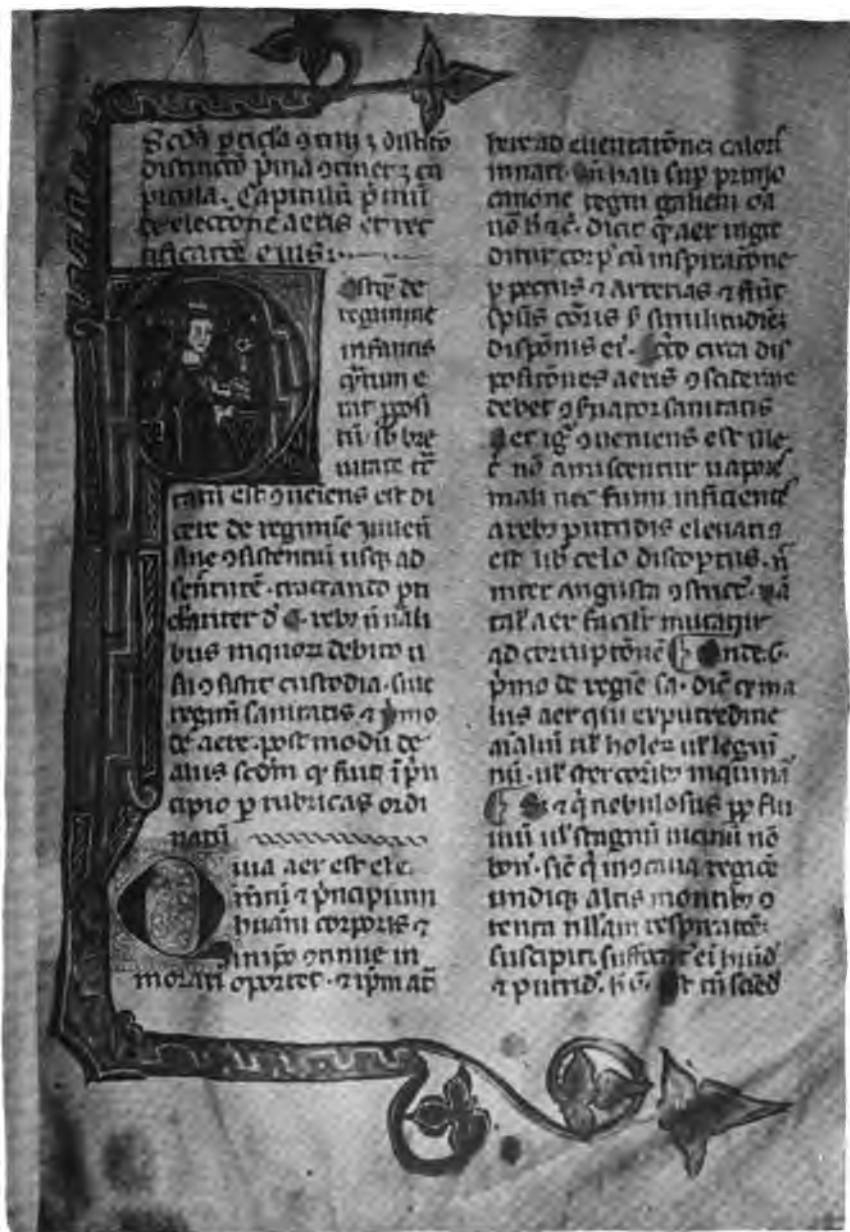 Scđa ꝑticła ɔtinꝫ ꝫ distictō
distinctō p̾ma ɔtinet ꝫ ca
pitula. Capitulū p̾mū
de electione aeris et rec
tificatōe eius
Postq̄ de
regimine
infantis
q̄tum e
rat ꝓposi
tū sb bre
uitate tc̄
tatū est ɔueīens est di
cere de regimīe iuuen
siue ɔsistentiū usqꝫ ad
senitutē. tractanto pri
cipaliter đ 6. rebꝫ n̄ nāli
bus in quoꝝ debito u
su ɔsistit custodia. siue
regim̄ sanitatis ⁊ p̾mo
de aere. post modū de
aliis scđm q̄ sunt ī p̾n
cipio ꝑ rubricas ordi
natū
Quia aer est ele
m̄tū ⁊ p̾ncipium
huāni corporis ⁊
in ip̄o ɔtinue in
morari oportet. ⁊ ip̄m at̄
here ad euentatōnē caloris
innati. vn̄ hali sup primo
canone tegni galieni
nō. dicit q̄ aer ingre
ditur corpꝰ cū inspiratōne
ꝑ pectus ⁊ arterias ⁊ fiūt
sp̄us cordis similitudīe
disponis eiꝰ. circa dis
positōnes aeris ɔsiderare
debet ɔseruator sanitatis
Aer igr̄ ɔueniens est ille
c̄ nō amiscentur uapores
mali nec fumi inficientes
a rebꝫ putridis eleuatis
est sub celo discoptus. n̄
inter angusta ɔstrictꝰ. nā
talis aer facilꝛ mutatur
ad corruptōnē .G.
p̾mo de regīe sa. dic̄ ꝙ ma
lus aer qui ex putredine
aīaliū ul̄ holeꝝ ul̄ legūi
nū. ul̄ stercoribꝫ inquinaꝰ
⁊ q̄ nebulosus ꝓp flu
uiū ul̄ stagnū uicinū nō
bonꝰ. sic̄ q̄ in ɔcaua regiōe
undiqꝫ altis montibꝫ ɔ
tentꝰ nullam respiratōem
suscipit. suffocat ei
⁊ putridꝰ.